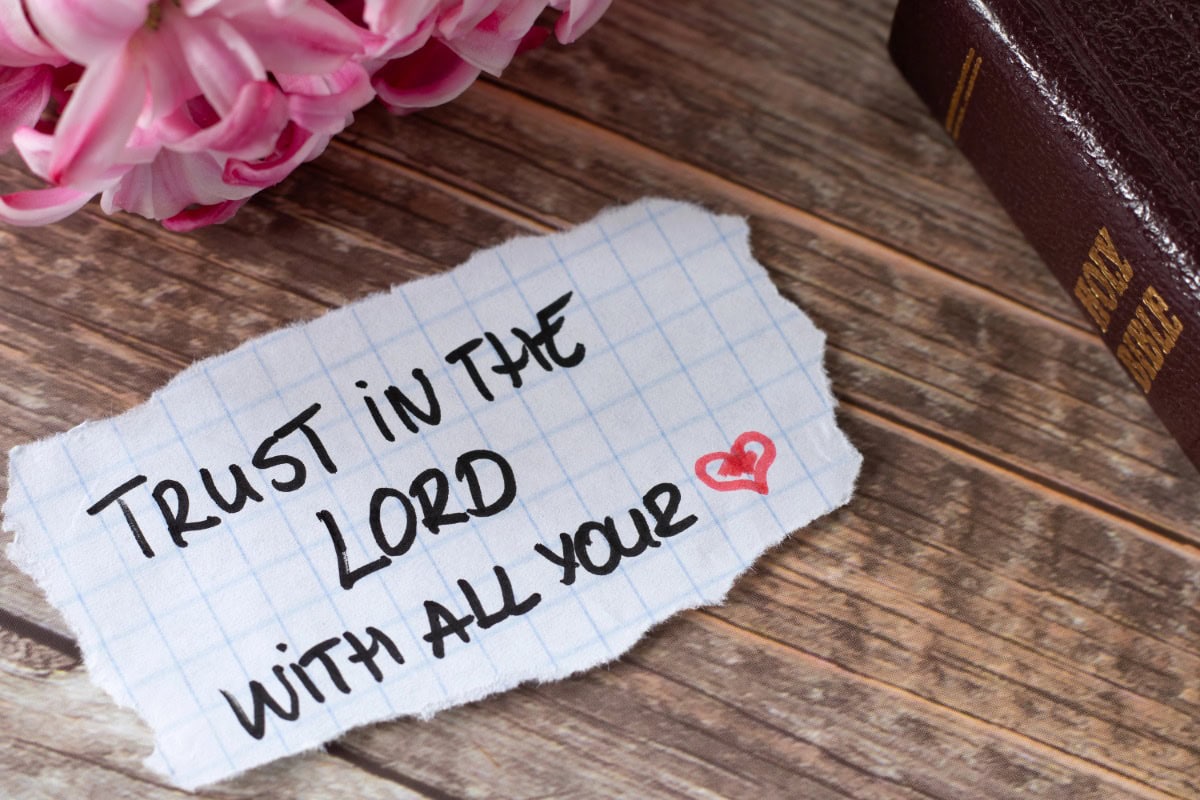 TRUST IN THE
LORD
WITH ALL YOUR ❤
HOLY
BIBLE